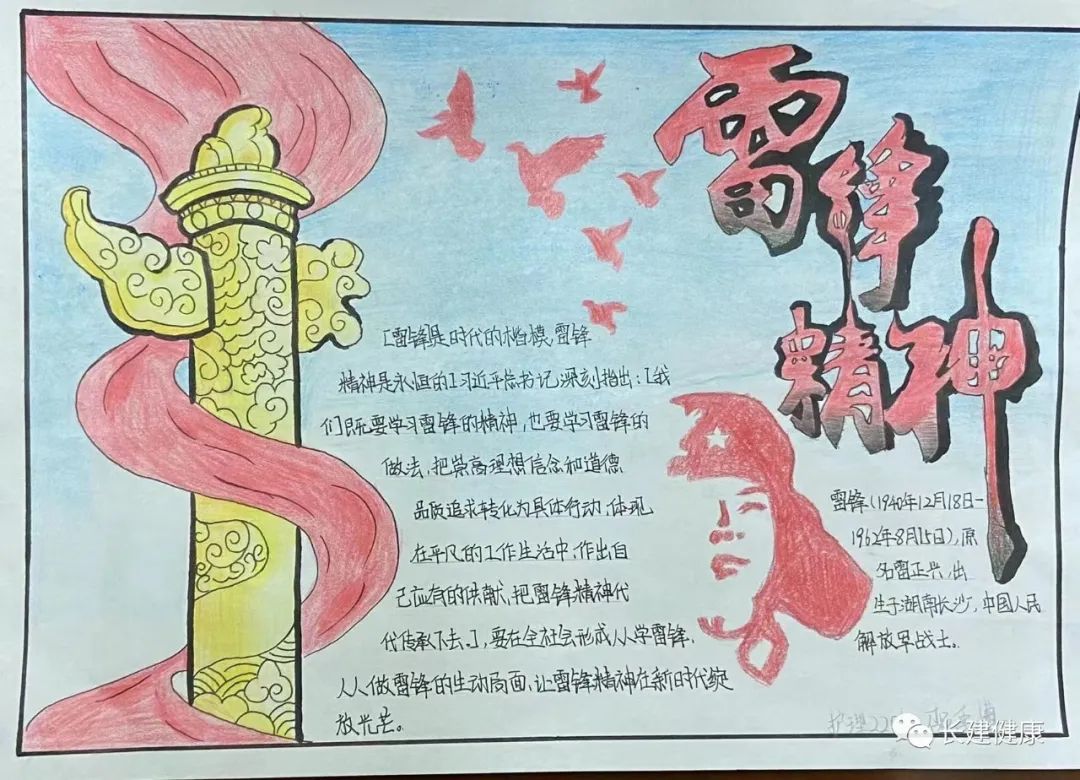 雷锋
精神
[雷锋]是时代的楷模,雷锋
精神是永恒的]习近平总书记深刻指出:[我
们既要学习雷锋的精神,也要学习雷锋的
做法,把崇高理想信念和道德
品质追求转化为具体行动,体现
在平凡的工作生活中,作出自
己应有的供献,把雷锋精神代
代传承下去。],要在全社会形成人人学雷锋,
人人做雷锋的生动局面,让雷锋精神在新时代绽
放光芒。
雷锋(1940年12月18日-
1962年8月15日),原
名雷正兴,出
生于湖南长沙,中国人民
解放军战士。
护理22
长建健康